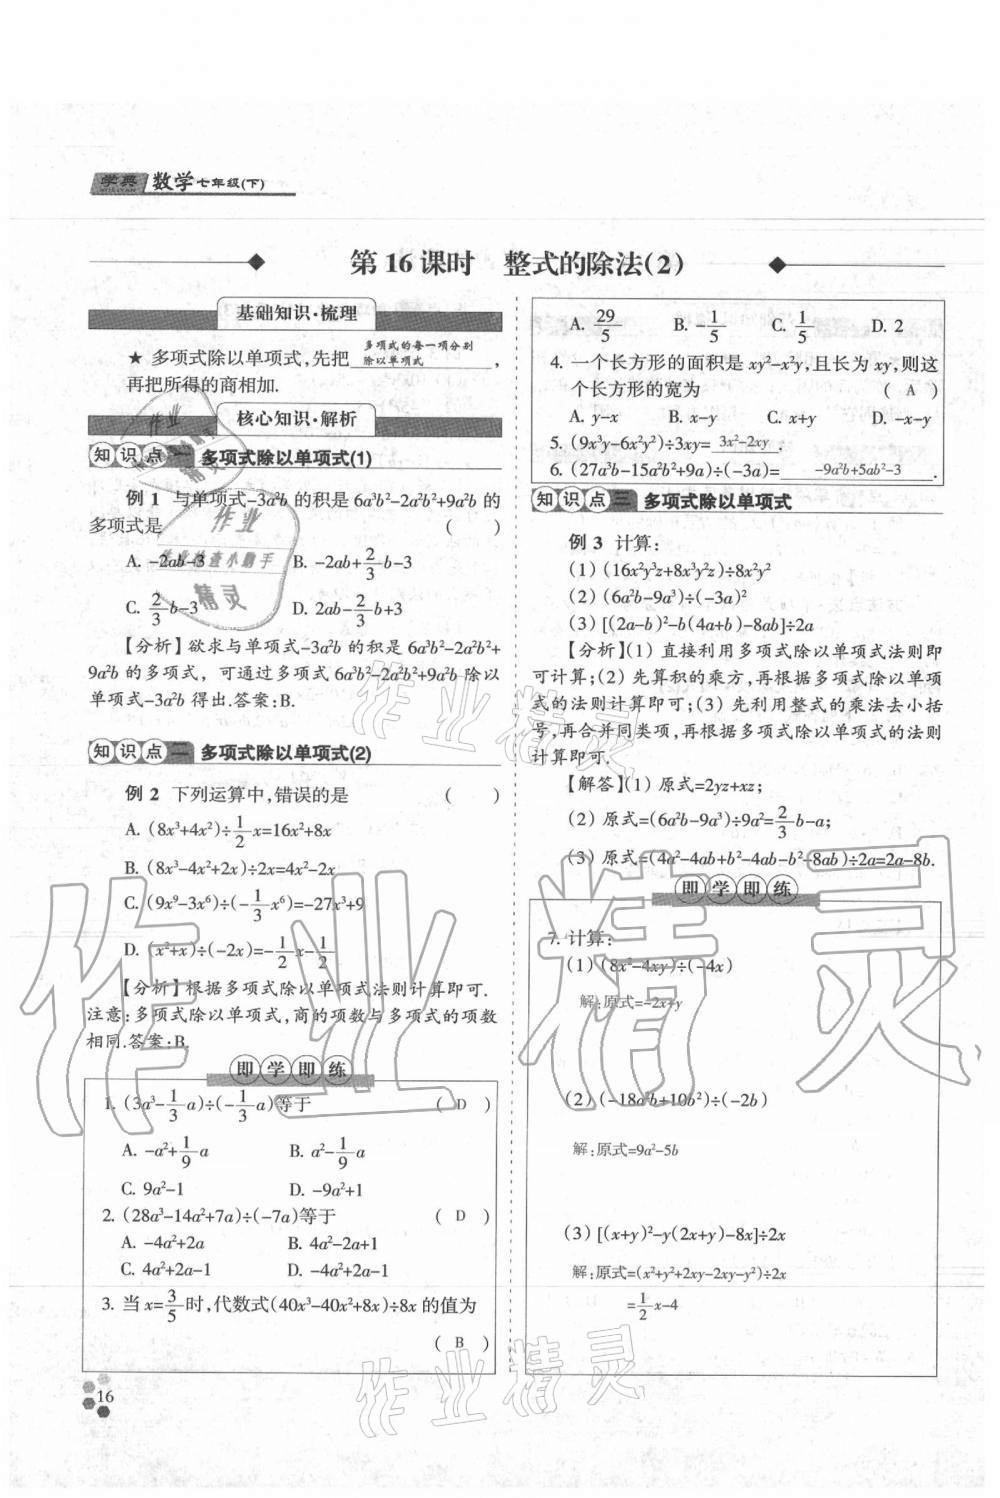 学典 数学七年级(下)
第16课时 整式的除法(2)
基础知识·梳理
★ 多项式除以单项式,先把 多项式的每一项分别除以单项式 ,
再把所得的商相加.
核心知识·解析
知识点一 多项式除以单项式(1)
例 1 与单项式-3a²b 的积是 6a³b²-2a²b²+9a²b 的
多项式是 ( )
A. -2ab-3 B. -2ab+2/3 b-3
C. 2/3 b-3 D. 2ab-2/3 b+3
【分析】欲求与单项式-3a²b 的积是 6a³b²-2a²b²+
9a²b 的多项式, 可通过多项式 6a³b²-2a²b²+9a²b 除以
单项式-3a²b 得出.答案:B.
知识点二 多项式除以单项式(2)
例 2 下列运算中,错误的是 ( )
A. (8x³+4x²)÷1/2 x=16x²+8x
B. (8x³-4x²+2x)÷2x=4x²-2x
C. (9x⁹-3x⁶)÷(-1/3 x⁶)=-27x³+9
D. (x²+x)÷(-2x)=-1/2 x-1/2
【分析】根据多项式除以单项式法则计算即可.
注意:多项式除以单项式,商的项数与多项式的项数
相同.答案:B.
即学即练
1. (3a³-1/3 a)÷(-1/3 a)等于 ( D )
A. -a²+1/9 a B. a²-1/9 a
C. 9a²-1 D. -9a²+1
2. (28a³-14a²+7a)÷(-7a)等于 ( D )
A. -4a²+2a B. 4a²-2a+1
C. 4a²+2a-1 D. -4a²+2a-1
3. 当 x=3/5 时,代数式(40x³-40x²+8x)÷8x 的值为
( B )
16
A. 29/5 B. -1/5 C. 1/5 D. 2
4. 一个长方形的面积是 xy²-x²y,且长为 xy,则这
个长方形的宽为 ( A )
A. y-x B. x-y C. x+y D. -x-y
5. (9x³y-6x²y²)÷3xy= 3x²-2xy .
6. (27a³b-15a²b²+9a)÷(-3a)= -9a²b+5ab²-3 .
知识点三 多项式除以单项式
例 3 计算:
(1) (16x²y³z+8x³y²z)÷8x²y²
(2) (6a²b-9a³)÷(-3a)²
(3) [(2a-b)²-b(4a+b)-8ab]÷2a
【分析】(1) 直接利用多项式除以单项式法则即
可计算;(2) 先算积的乘方,再根据多项式除以单项
式的法则计算即可;(3) 先利用整式的乘法去小括
号,再合并同类项,再根据多项式除以单项式的法则
计算即可.
【解答】(1) 原式=2yz+xz;
(2) 原式=(6a²b-9a³)÷9a²=2/3 b-a;
(3) 原式=(4a²-4ab+b²-4ab-b²-8ab)÷2a=2a-8b.
即学即练
7. 计算:
(1) (8x²-4xy)÷(-4x)
解:原式=-2x+y
(2) (-18a²b+10b²)÷(-2b)
解:原式=9a²-5b
(3) [(x+y)²-y(2x+y)-8x]÷2x
解:原式=(x²+y²+2xy-2xy-y²)÷2x
=1/2 x-4